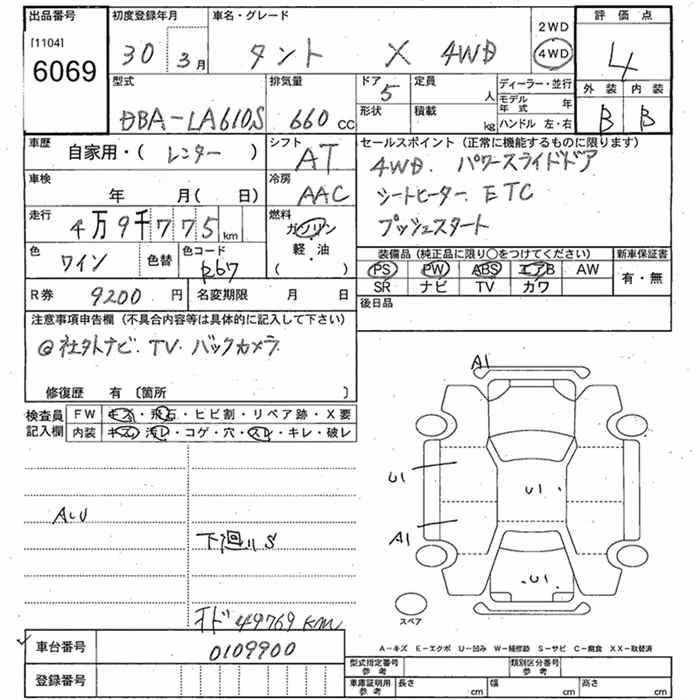 出品番号 初度登録年月 車名・グレード 2WD 評価点
[1104] 6069 30 3月 タント X 4WD 4WD 4
型式 排気量 ドア 5 定員 人 ディーラー・並行 外装 内装
DBA-LA610S 660 cc 形状 積載 kg モデル年式 年 B B
ハンドル 左・右
車歴 自家用・( レンター ) シフト AT セールスポイント(正常に機能するものに限ります)
4WD. パワースライドドア
車検 年 月( 日) 冷房 AAC シートヒーター ETC
走行 4万9千775km 燃料 ガソリン 軽・油 ( ) プッシュスタート
色 ワイン 色替 色コード R67 装備品(純正品に限り○をつけてください) 新車保証書
PS PW ABS エアB AW 有・無
SR ナビ TV カワ
R券 9200円 名変期限 月 日 後日品
注意事項申告欄(不具合内容等は具体的に記入して下さい)
@社外ナビ. TV バックカメラ
修復歴 有〔箇所 〕
検査員記入欄 FW キズ・飛石・ヒビ割・リペア跡・X要
内装 キズ・汚レ・コゲ・穴・スレ・キレ・破レ
A1
U1
U1
ALU
A1
下廻りS
U1
スペア
オド 49769km
A-キズ E-エクボ U-凹み W-補修跡 S-サビ C-腐食 XX-取替済
車台番号 0109900
登録番号
型式指定番号 参考 類別区分番号 参考
車庫証明用 参考 長さ cm 幅 cm 高さ cm